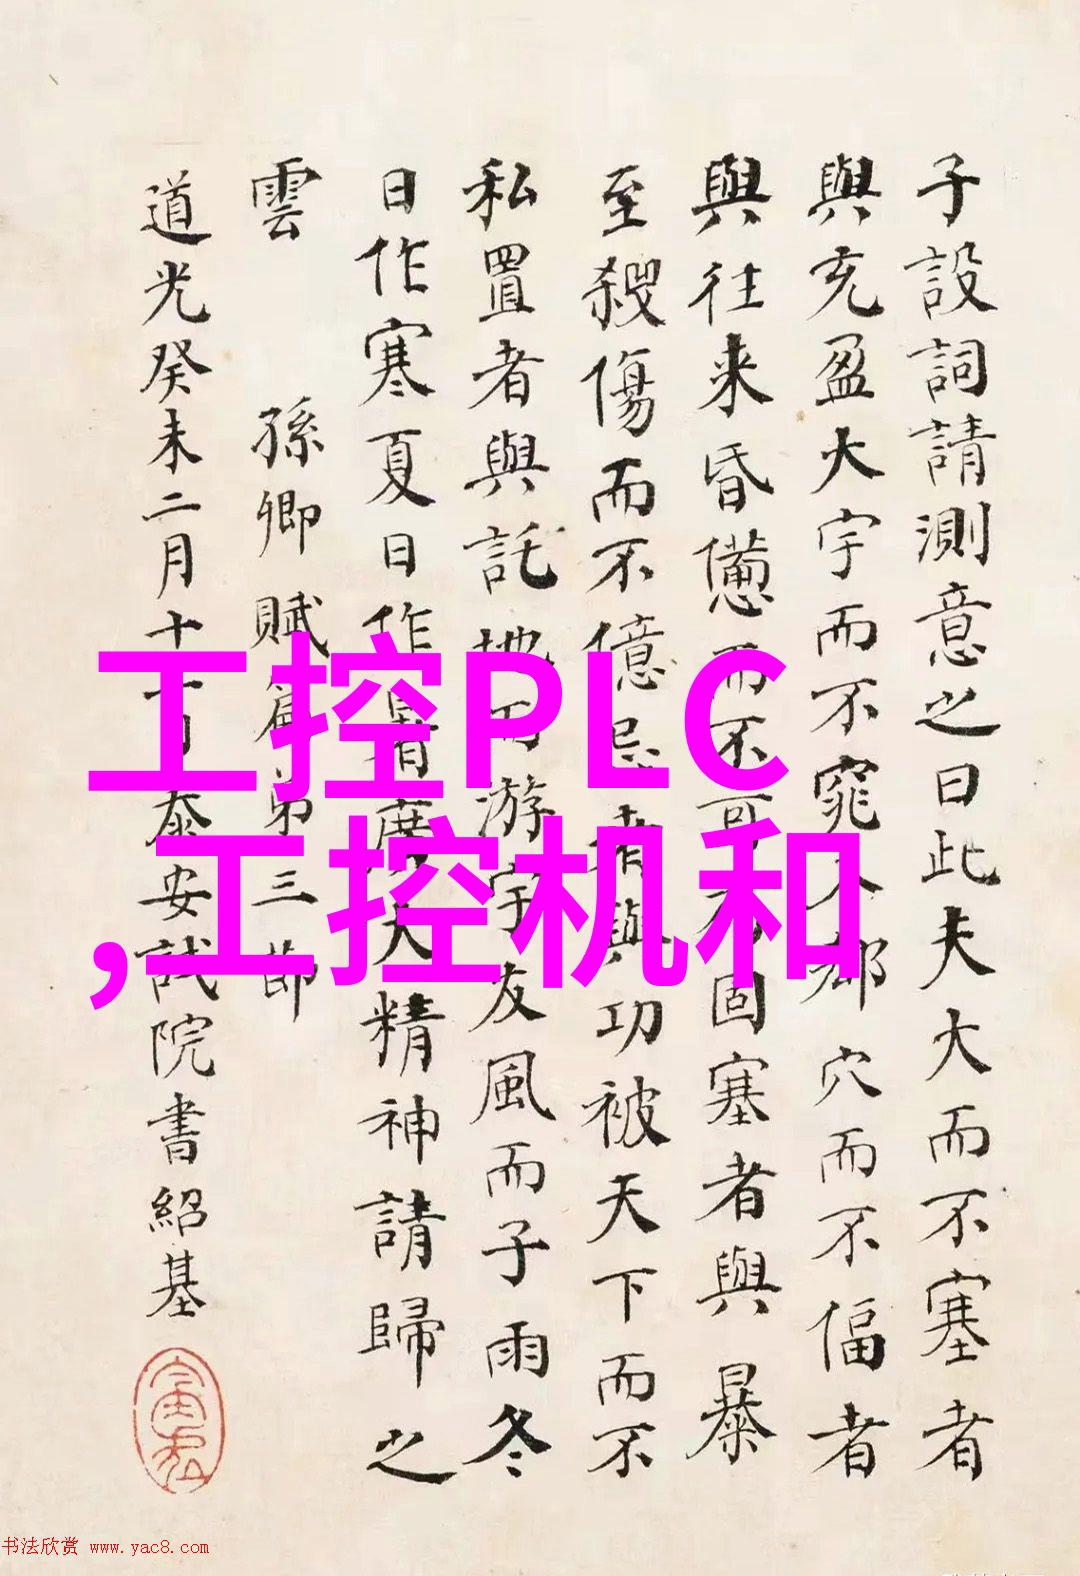 子設詞請測意之曰此夫大而不塞者
與充盈大宇而不窕入郄穴而不偪者
與往来昏憊而不可為固塞者與暴
至殺傷而不億忌者與功被天下而不
私置者與託地而游宇友風而子雨冬
日作寒夏日作暑廣大精神請歸之
雲 孫卿賦篇弟三節
道光癸未二月十一日泰安試院書紹基
工控PLC
,工控机和
书法欣赏 www.yac8.com